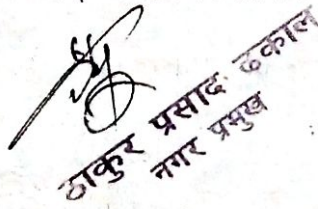 ठाकुर प्रसाद ढकाल
नगर प्रमुख